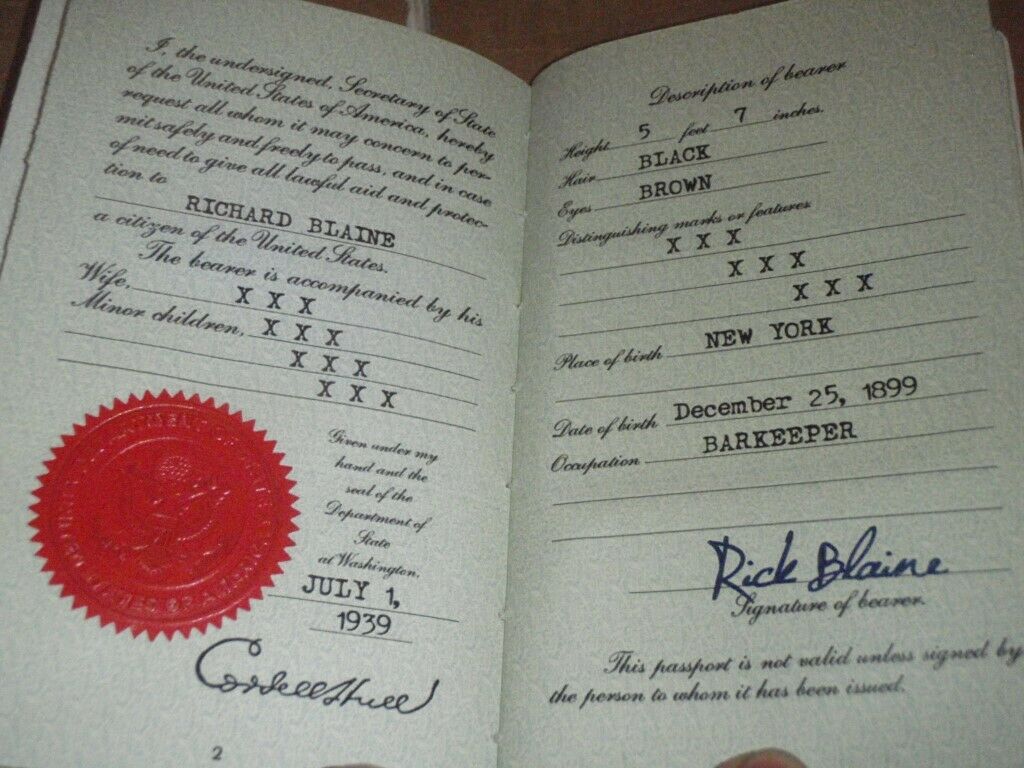 I, the undersigned, Secretary of State
of the United States of America, hereby
request all whom it may concern to per-
mit safely and freely to pass, and in case
of need to give all lawful aid and protec-
tion to
RICHARD BLAINE
a citizen of the United States.
The bearer is accompanied by his
Wife, X X X
Minor children, X X X
X X X
X X X
Given under my
hand and the
seal of the
Department of
State
at Washington,
JULY 1,
1939
Cordell Hull
2
Description of bearer
Height 5 feet 7 inches.
Hair BLACK
Eyes BROWN
Distinguishing marks or features
X X X
X X X
X X X
Place of birth NEW YORK
Date of birth December 25, 1899
Occupation BARKEEPER
Rick Blaine
Signature of bearer.
This passport is not valid unless signed by
the person to whom it has been issued.